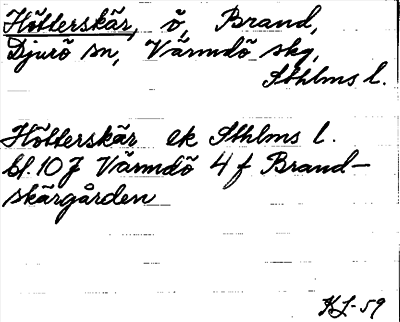 Hötterskär, ö, Brand,
Djurö sn, Värmdö skg,
Sthlms l.
Hötterskär ek Sthlms l.
bl. 107 Värmdö 4 f Brand-
skärgården
KL-59